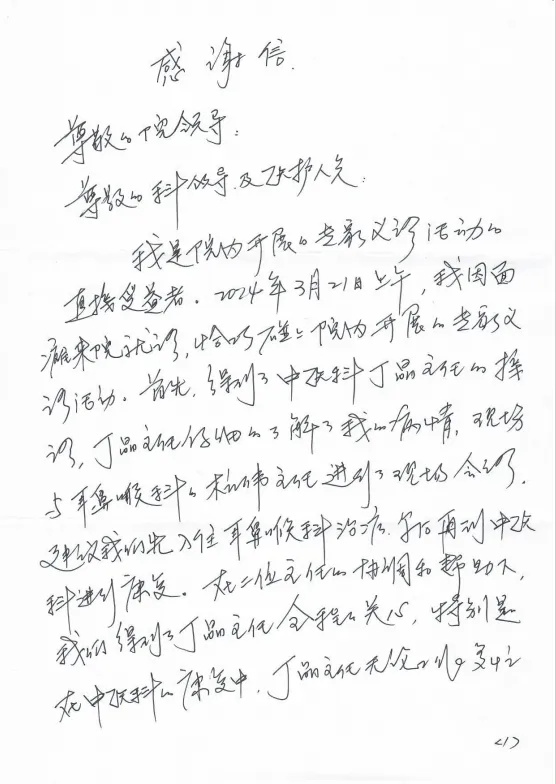 感谢信.
尊敬的院领导:
尊敬的科领导及医护人员:
我是院内开展的专家义诊活动的
直接受益者。2024年3月21日上午,我因面
瘫来院就诊,恰巧碰上院内开展的专家义
诊活动。首先,得到了中医科丁晶主任的接
诊,丁晶主任仔细的了解了我的病情,现场
与耳鼻喉科的 主任进行了现场会诊,
建议我们先入住耳鼻喉科治疗,尔后再到中医
科进行康复。在二位主任的协调和帮助下,
我们得到了丁晶主任全程的关心,特别是
在中医科的康复中,丁晶主任无
<1>